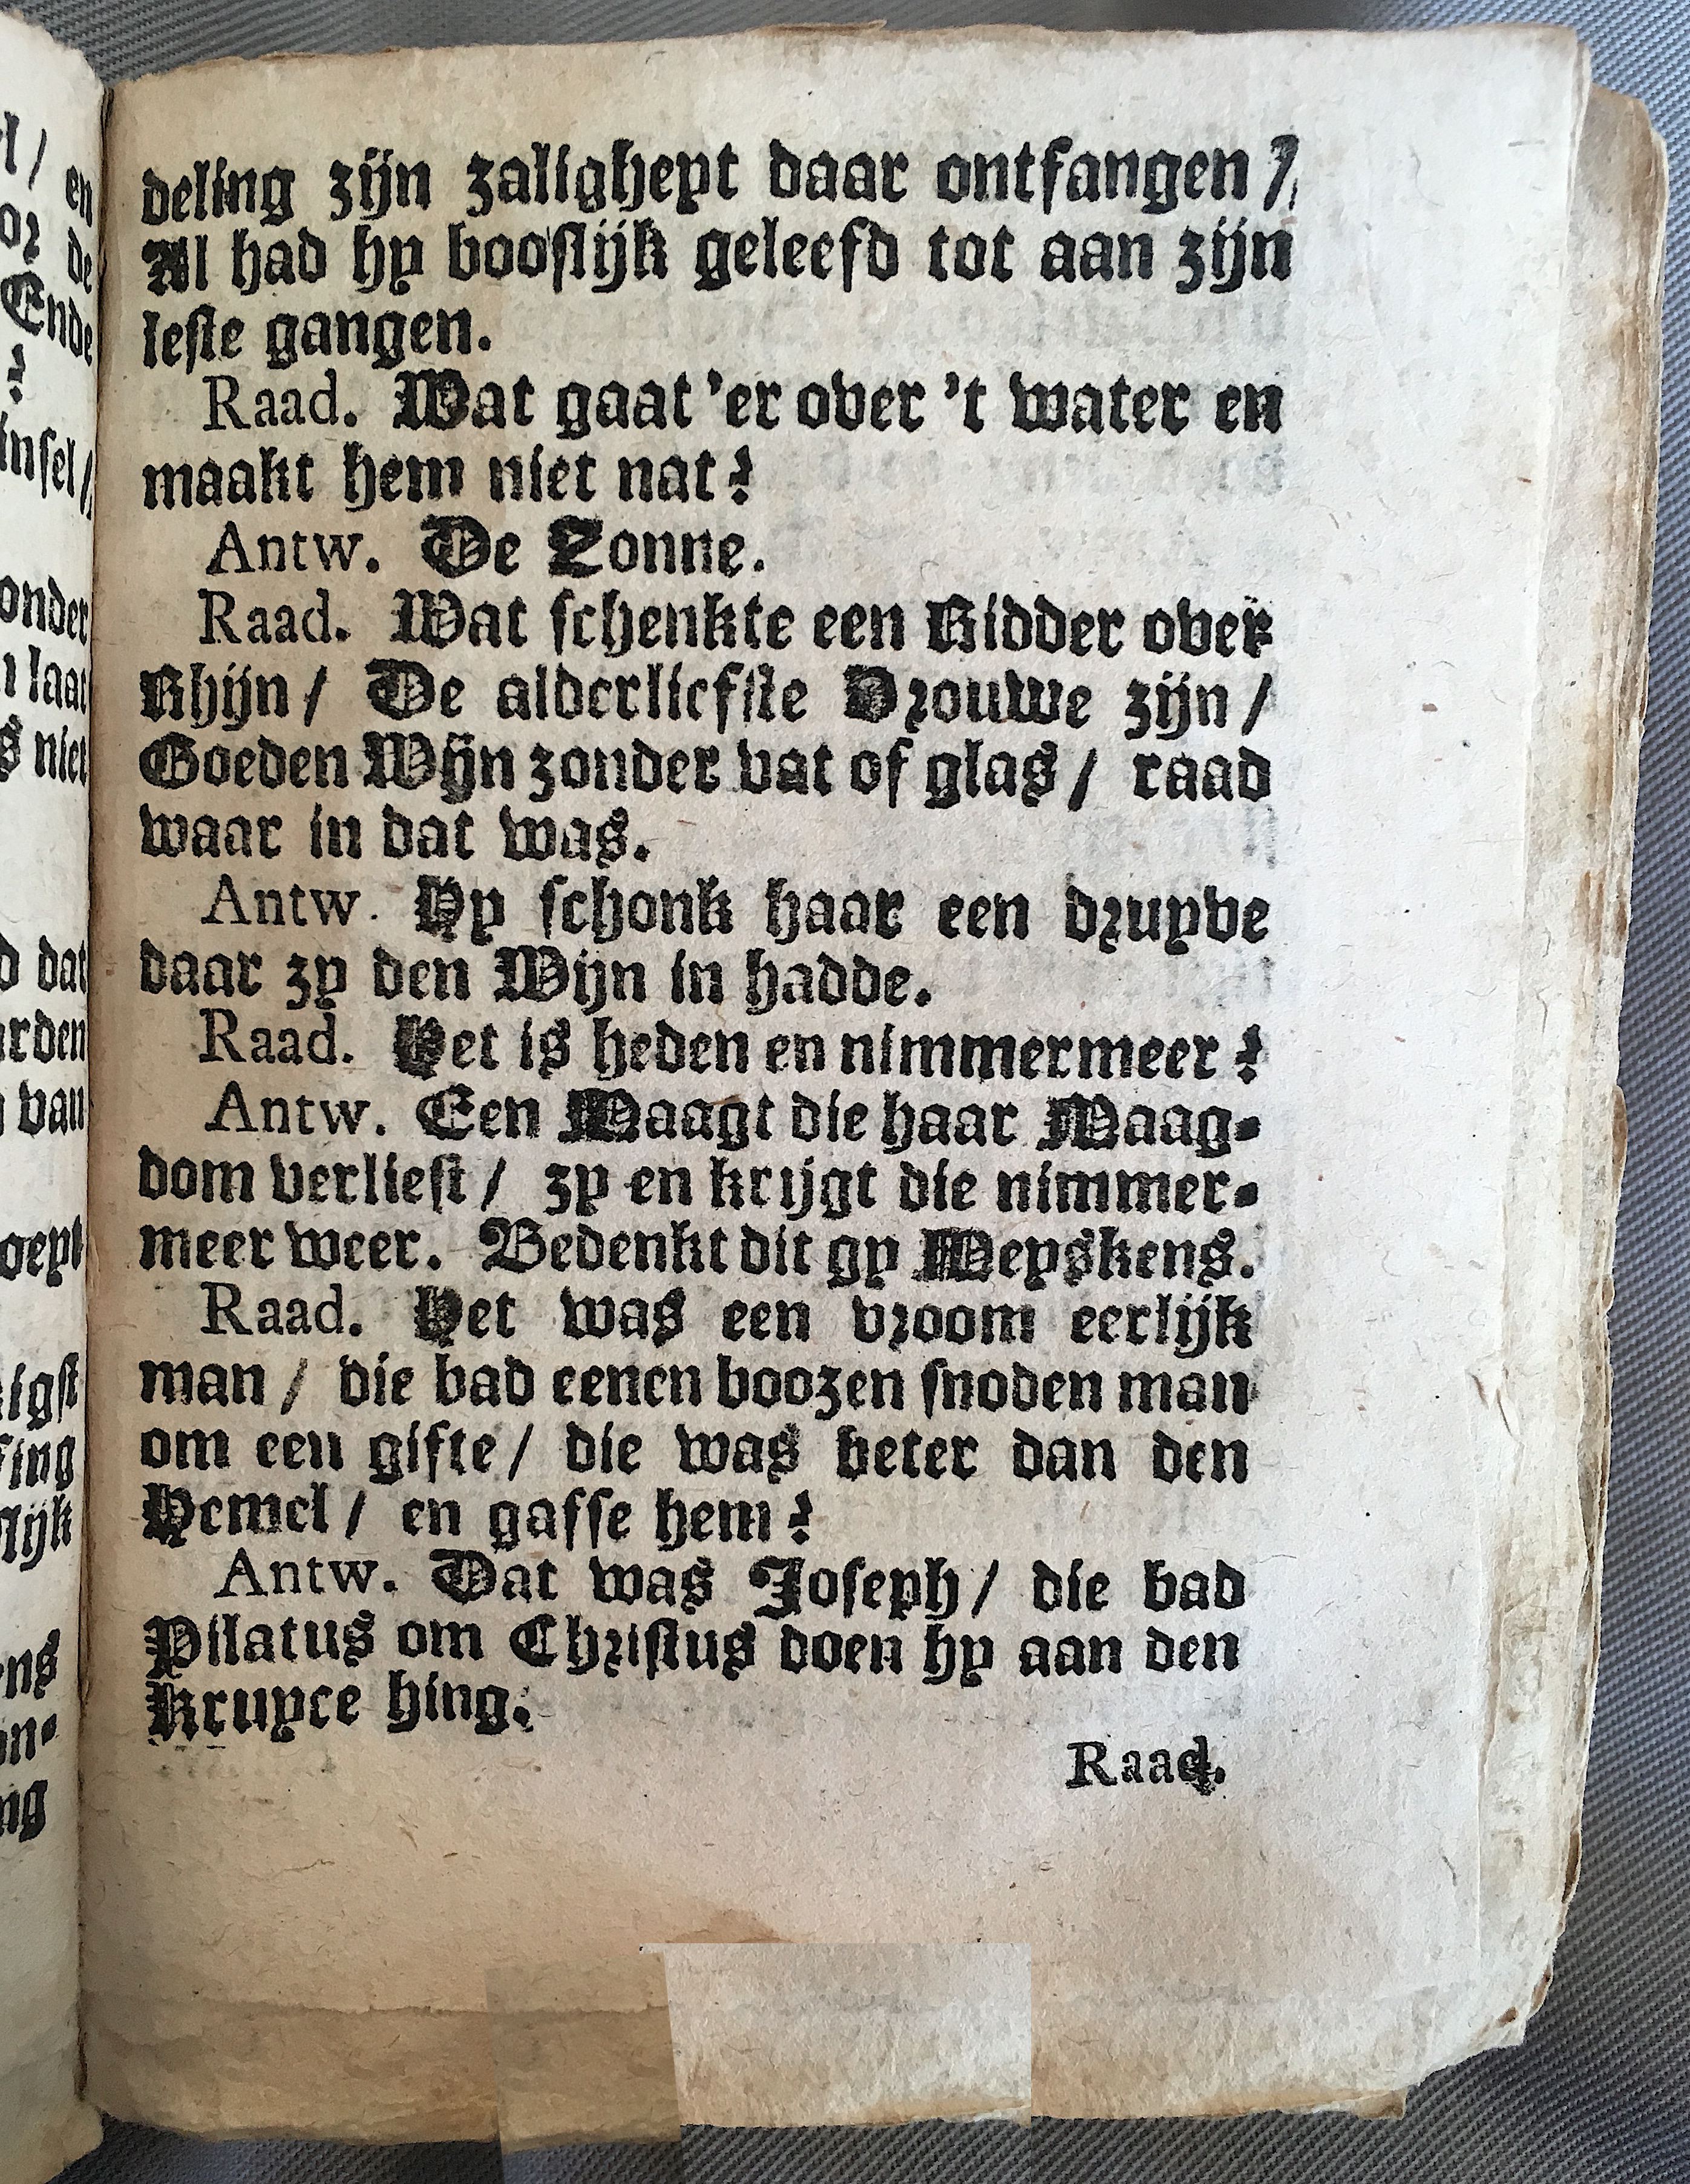 deling zijn zalighept daar ontfangen /
Al had hy booslijk geleefd tot aan zijn
leste gangen.
Raad. Wat gaat 'er over 't water en
maakt hem niet nat?
Antw. De Zonne.
Raad. Wat schenkte een Ridder over
Rhijn / De alderliefste Vrouwe zijn /
Goeden Wijn zonder vat of glas / raad
waar in dat was.
Antw. Hy schonk haar een druyve
daar zy den Wijn in hadde.
Raad. Het is heden en nimmermeer?
Antw. Een Maagt die haar Maag-
dom verliest / zy en krijgt die nimmer-
meer weer. Bedenkt dit gy Meyskens.
Raad. Het was een vroom eerlijk
man / die bad eenen boozen snoden man
om een gifte / die was beter dan den
Hemel / en gaffe hem?
Antw. Dat was Joseph / die bad
Pilatus om Christus doen hy aan den
Kruyce hing.
Raad.